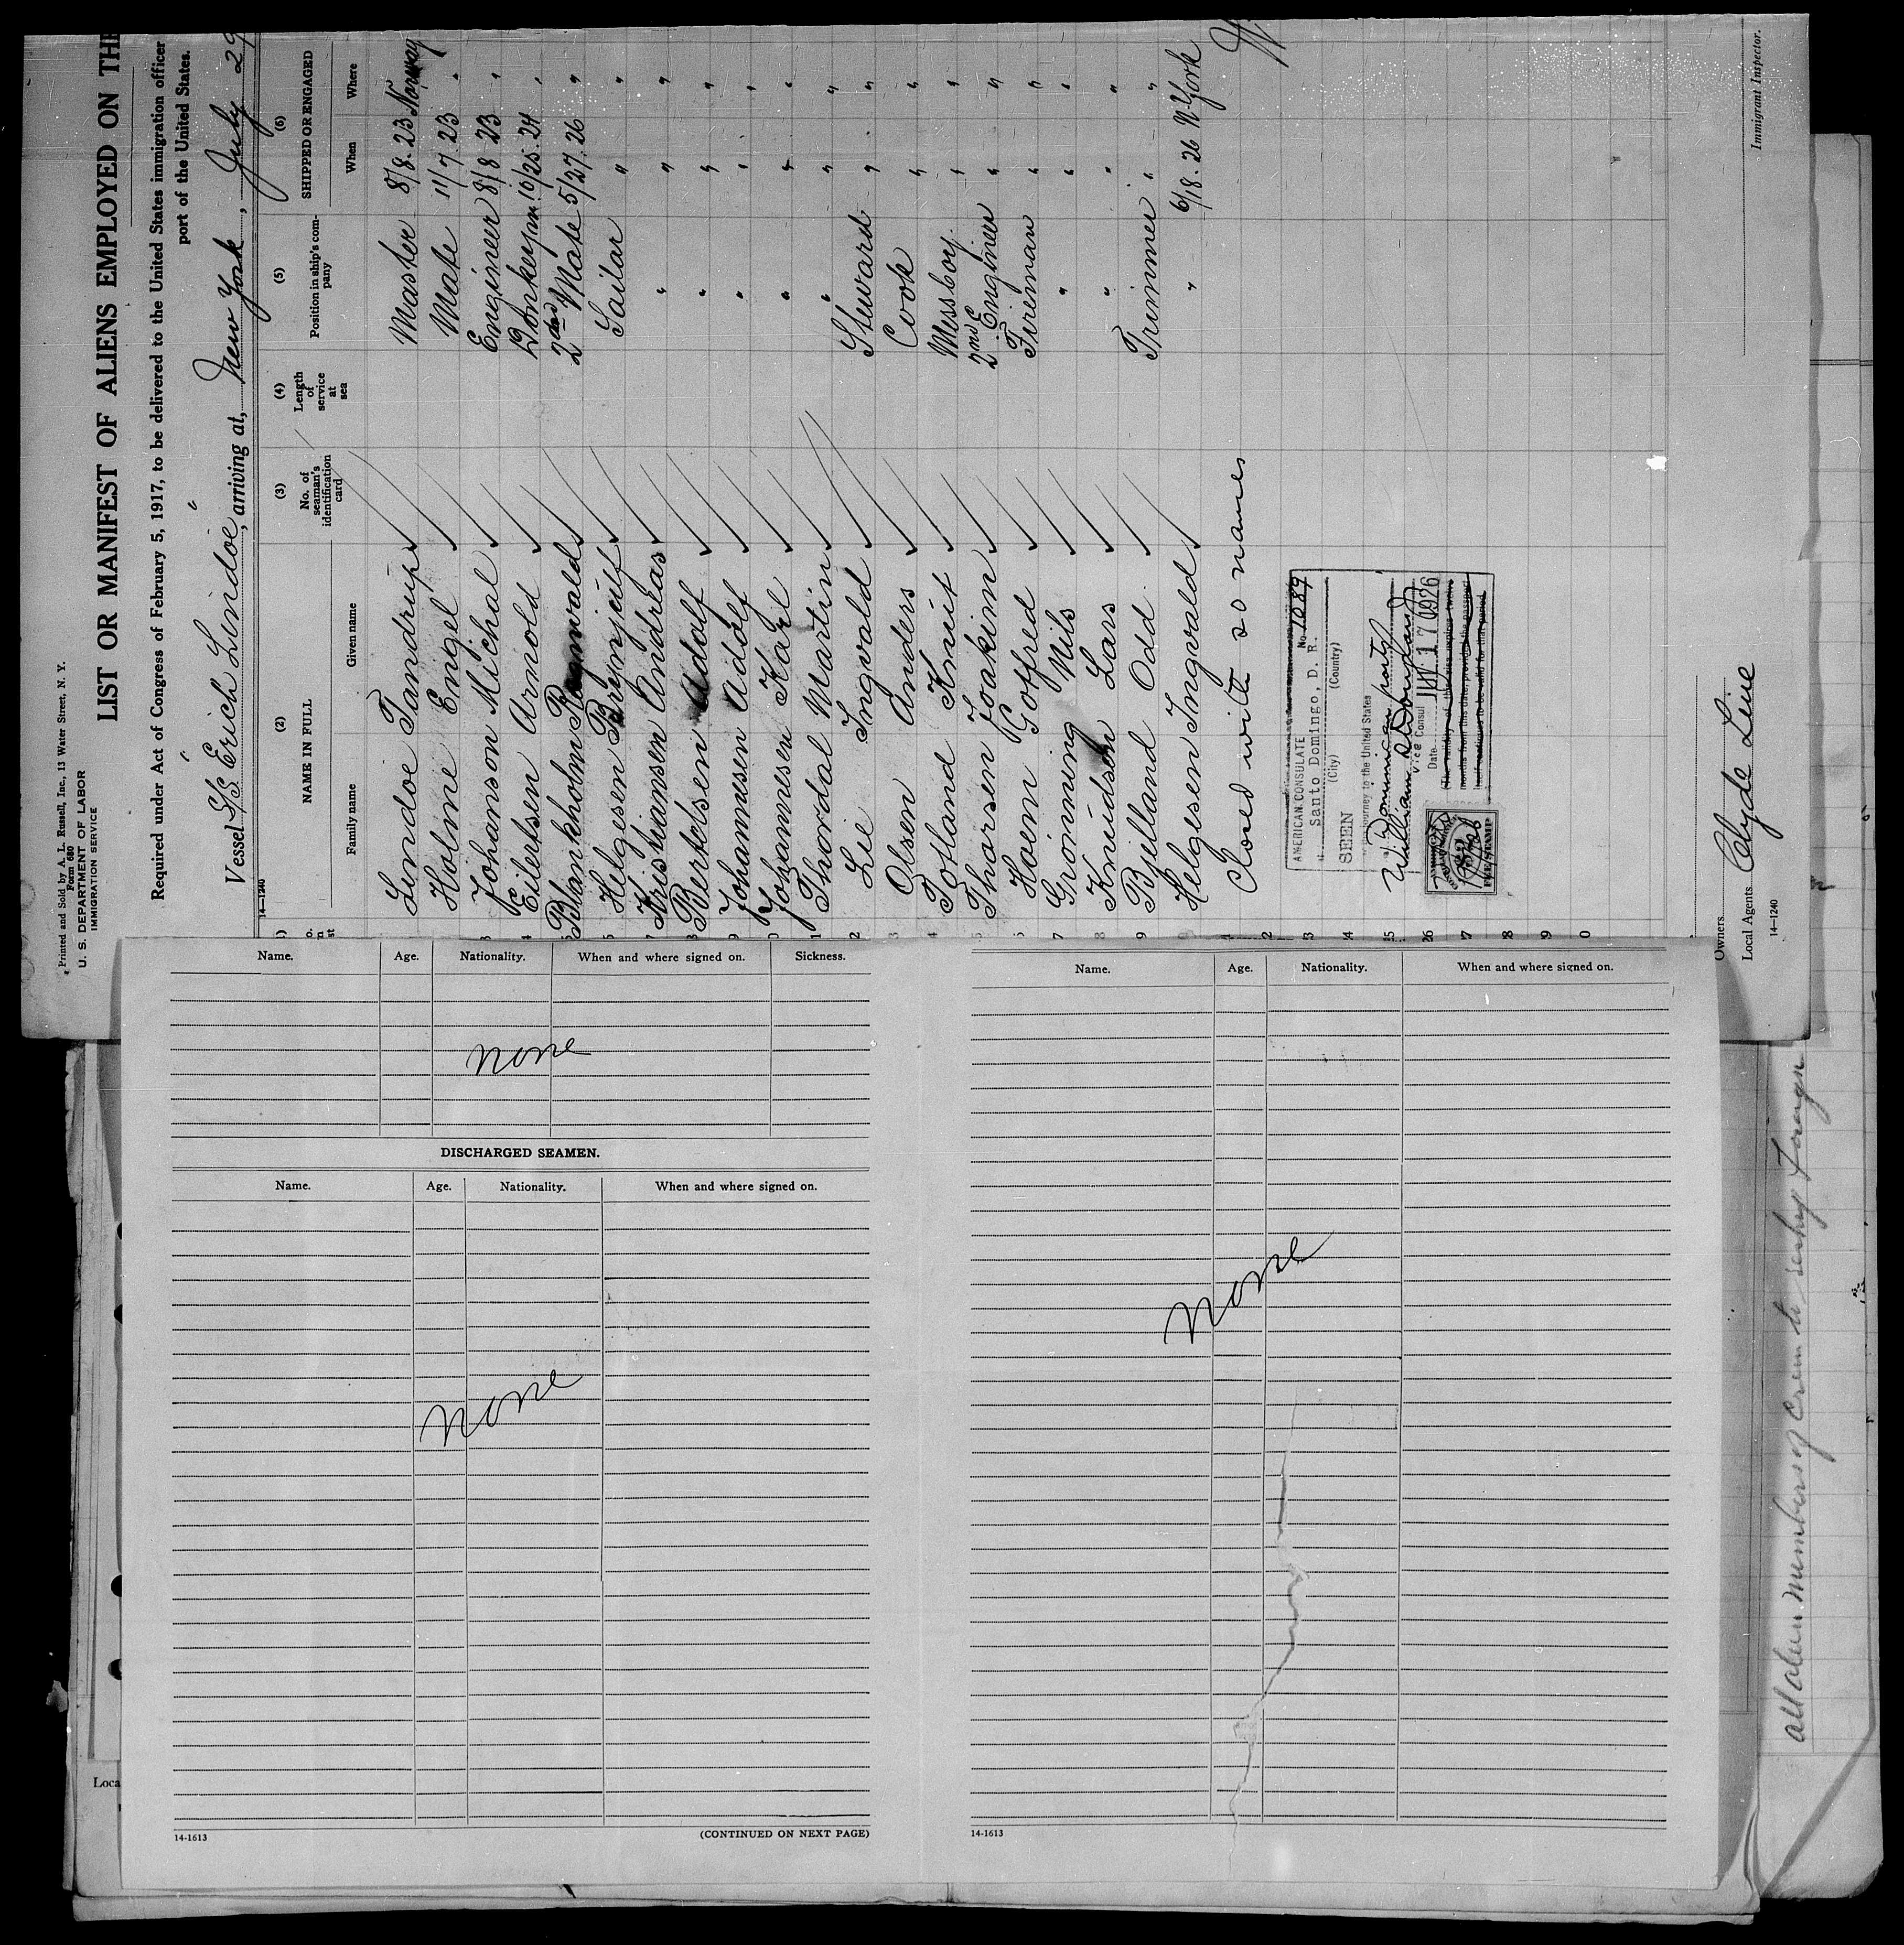 Printed and Sold by A. L. Russell, Inc., 13 Water Street, N. Y.
Form 680
U. S. DEPARTMENT OF LABOR
IMMIGRATION SERVICE
LIST OR MANIFEST OF ALIENS EMPLOYED ON TH
Required under Act of Congress of February 5, 1917, to be delivered to the United States immigration officer
port of the United States.
Vessel S/S Erich Lindoe, arriving at, New York, July 29
14—1240
(2) (3) (4) (5) (6)
NAME IN FULL No. of seaman's identification card Length of service at sea Position in ship's company SHIPPED OR ENGAGED
Family name Given name When Where
Lindoe Tandrup Master 8/8.23 Norway
Holme Engel Mate 11/7.23 "
Johanson Michal Engineer 8/8 23 "
Eilertsen Arnold Donkeym. 10/25.24 "
Blankholm Ragnvald 2nd Mate 5/27.26 "
Helgesen Brynjulf Sailor " "
Kristiansen Andreas " " "
Bertelsen Adolf " " "
Johannesen Adolf " " "
Johannesen Karl " " "
Thordal Martin " " "
Lie Ingvald Steward " "
Olsen Anders Cook " "
Totland Knut Messboy " "
Tharsen Joakim 2nd Engineer " "
Hoem Gotfred Fireman " "
Grönning Nils " " "
Knudsen Lars " " "
Bjelland Odd Trimmer " "
Helgesen Ingvald " 6/18.26 N-York
Closed with 20 names
AMERICAN CONSULATE No. 1089
Santo Domingo, D. R.
(City) (Country)
SEEN
journey to the United States
Dominican ports
William
Vice Consul
Date 17 1926
(The validity of
months from this date, provided the passport
itself continues to be valid for that period
FEE STAMP
Owners
Local Agents Clyde Line
14—1240
Immigrant Inspector.
Name. Age. Nationality. When and where signed on. Sickness.
none
DISCHARGED SEAMEN.
Name. Age. Nationality. When and where signed on.
none
14-1613 (CONTINUED ON NEXT PAGE)
Name. Age. Nationality. When and where signed on.
none
14-1613
Loca
all alien members of crew to reship foreign